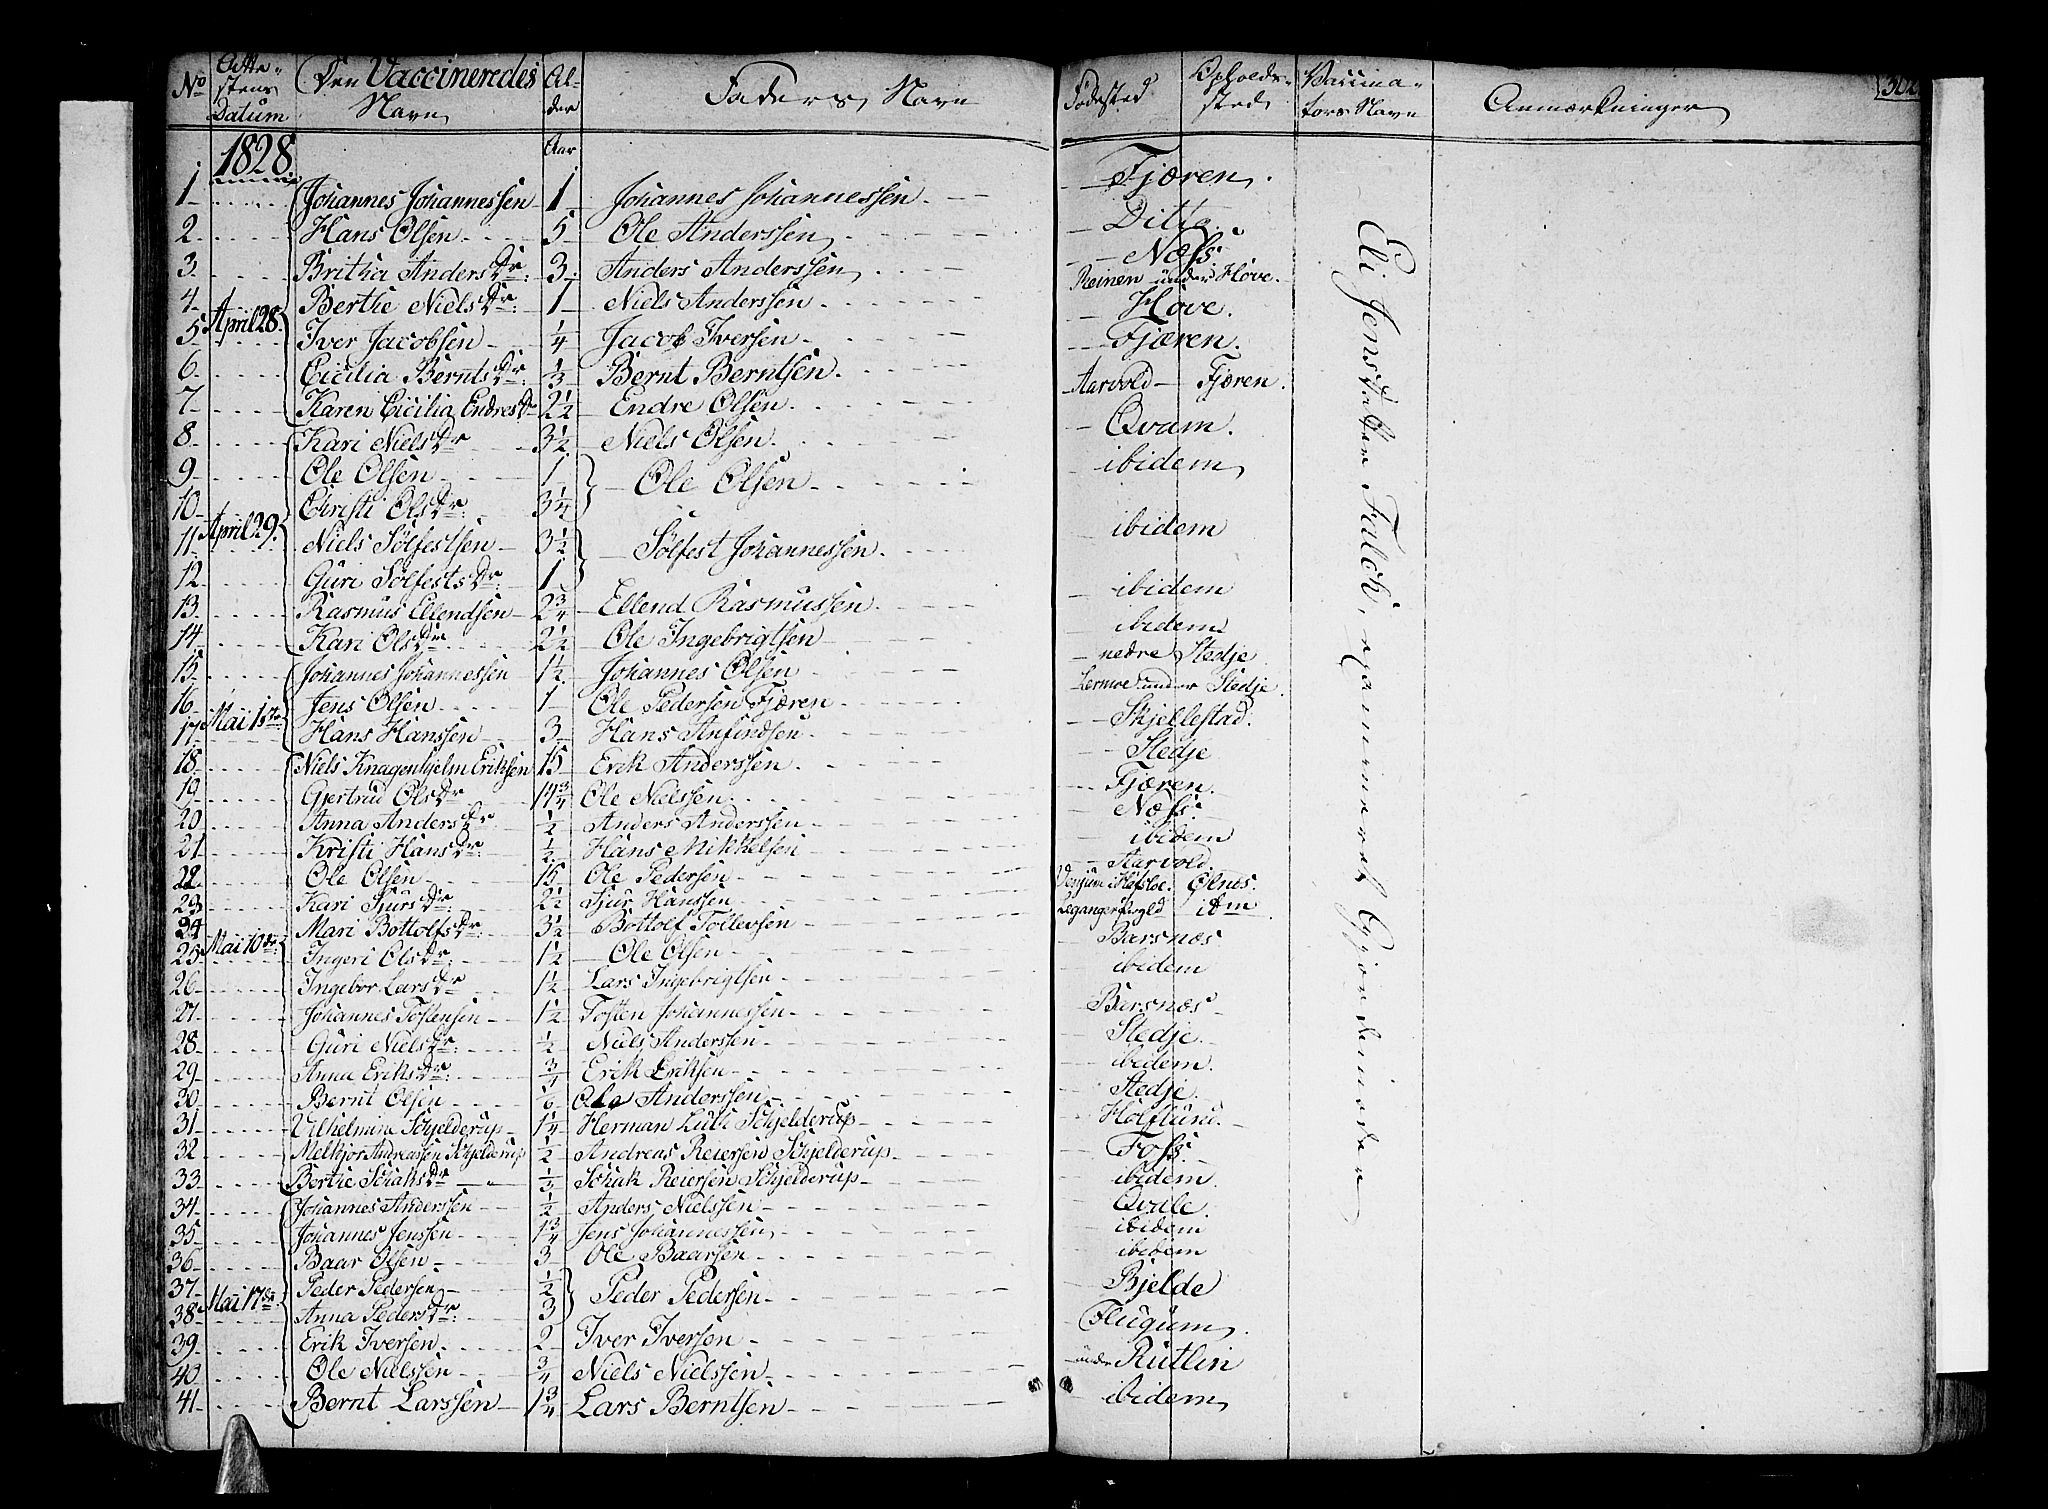 No Atte-stens Datum Den Vaccineredes Navn Al-der Faders Navn Fødested Opholds-sted Vaccina-tors Navn Anmærkninger 302
1828 Aar
1 Johannes Johannessen 1 Johannes Johannessen Fjæren
2 Hans Olsen 5 Ole Anderssen Ditto
3 Britha Anders Dr: 3 Anders Anderssen Næss
4 Berthe Niels Dr: 1 Niels Anderssen Reinen under Hove
5 April 28 Iver Jacobsen 1/4 Jacob Iversen Hove
6 Cicilia Bernts Dr: 1/3 Bernt Berntsen Fjæren
7 Karen Cicilia Endres Dr 2 1/2 Endre Olsen Aarvold Fjæren
8 Kari Niels Dr 3 1/2 Niels Olsen Qvam
9 Ole Olsen 1 Ole Olsen ibidem
10 Christi Ols Dr: 3 1/4
11 April 29 Niels Sølfestsen 3 1/2 Sølfest Johannessen ibidem
12 Guri Sølfests Dr: 1
13 Rasmus Ellendsen 2 3/4 Ellend Rasmussen ibidem
14 Kari Ols Dr 2 1/2 Ole Ingebrigtsen ibidem
15 Johannes Johannessen 1 1/2 Johannes Olsen nedre Stedje
16 Jens Olsen 1 Ole Pedersen Fjæren Lermoe under Stedje
17 Mai 1ste Hans Hanssen 3 Hans Anfindsen Skjellestad
18 Niels Knagenhjelm Eriksen 15 Erik Anderssen Stedje
19 Gjertrud Ols Dr 14 3/4 Ole Nielssen Fjæren
20 Anna Anders Dr: 1/2 Anders Anderssen Næss
21 Kristi Hans Dr: 1/2 Hans Mikkelsen ibidem
22 Ole Olsen 15 Ole Pedersen Aarvold
23 Kari Sjurs Dr: 2 1/2 Sjur Hanssen Venjum i Hafsloe Ølnes
24 Mari Bottolfs Dr: 3 1/2 Bottolf Tollevsen idm
25 Mai 10de Ingeri Ols Dr: 1 1/2 Ole Olsen Barsnæs
26 Ingebor Lars Dr 1 1/2 Lars Ingebrigtsen ibidem
27 Johannes Tostensen 1 1/2 Tosten Johannessen Barsnæs
28 Guri Niels Dr: 1/2 Niels Anderssen Stedje
29 Anna Eriks Dr: 3/4 Erik Eriksen ibidem
30 Bernt Olsen 1/6 Ole Anderssen Stedje
31 Vilhelmine Schjelderup 1 1/4 Herman Schjelderup
32 Melkjor Andreassen Schjelderup 1/2 Andreas Reiersen Schjelderup Foss
33 Berthe Schaks Dr 1/3 Schak Reiersen Schjelderup ibidem
34 Johannes Anderssen 1/2 Anders Nielssen Qvale
35 Johannes Jenssen 1 3/4 Jens Johannessen ibidem
36 Baar Olsen 3 Ole Baarsen ibidem
37 Peder Pedersen 1/2 Peder Pedersen Bjelde
38 Mai 17de Anna Peders Dr: 3
39 Erik Iversen 2 Iver Iversen Flugum
40 Ole Nielssen 3/4 Niels Nielssen under Rutlin
41 Bernt Larssen 1 3/4 Lars Berntsen ibidem
Eli Jensdatter Falck, examineret Gjordemoder